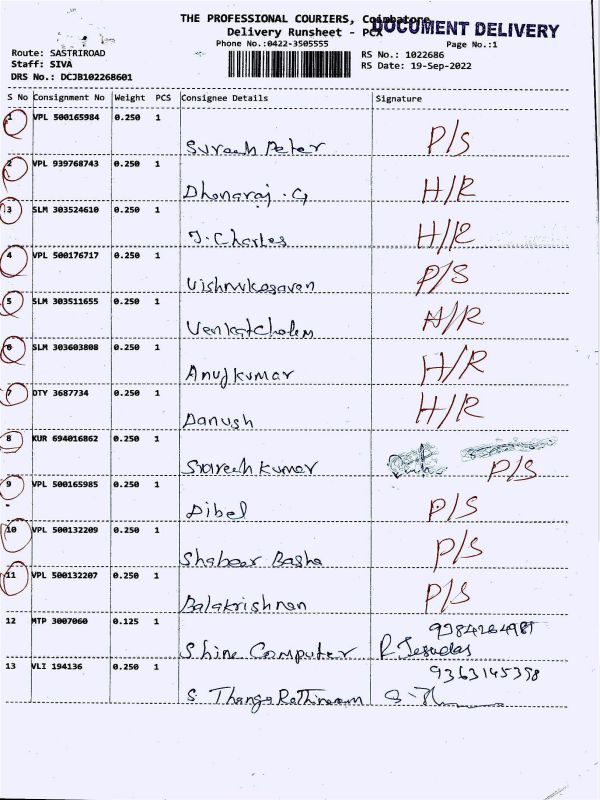 THE PROFESSIONAL COURIERS, Coimbatore
DOCUMENT DELIVERY
Delivery Runsheet - PCX
Phone No.:0422-3505555
Page No.:1
Route: SASTRIROAD
RS No.: 1022686
Staff: SIVA
RS Date: 19-Sep-2022
DRS No.: DCJB102268601
S No Consignment No Weight PCS Consignee Details Signature
1 VPL 500165984 0.250 1
Suresh Peter P/S
2 VPL 939768743 0.250 1
Dhanaraj. G H/R
3 SLM 303524610 0.250 1
J. Charles H/R
4 VPL 500176717 0.250 1
Vishnukesavan P/S
5 SLM 303511655 0.250 1
Venkatchalem H/R
6 SLM 303603808 0.250 1
Anujkumar H/R
7 DTY 3687734 0.250 1
Danush H/R
8 KUR 694016862 0.250 1
Sureshkumar P/S
9 VPL 500165985 0.250 1
Dibel P/S
10 VPL 500132209 0.250 1
Shabeer Basha P/S
11 VPL 500132207 0.250 1
Balakrishnan P/S
12 MTP 3007060 0.125 1
Shine Computer R. Jesudas
13 VLI 194136 0.250 1 9363145398
S. ThangaRathinam